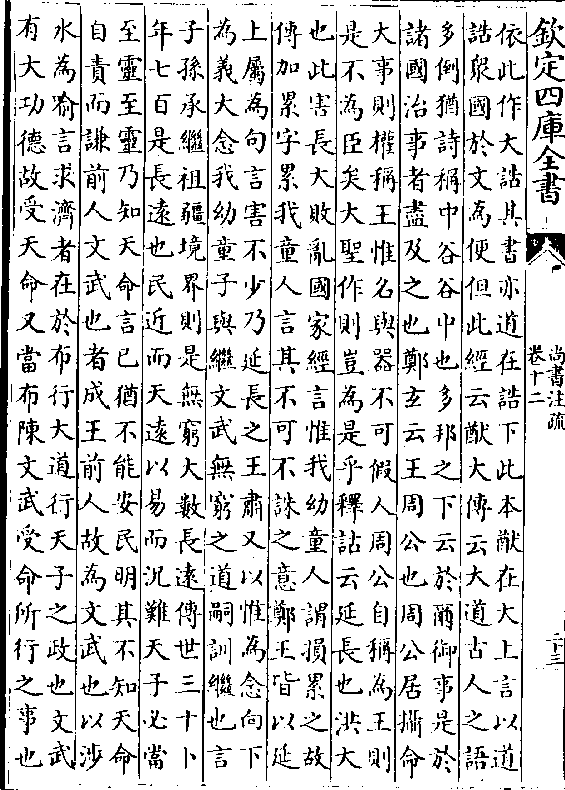 欽定四庫全書
尚書注疏
卷十二
二十三
依此作大誥其書亦道在誥下此本猷在大上言以道
誥衆國於文為便但此經云猷大傳云大道古人之語
多倒猶詩稱中谷谷中也多邦之下云於爾御事是於
諸國治事者盡及之也鄭玄云王周公也周公居攝命
大事則權稱王惟名與器不可假人周公自稱為王則
是不為臣矣大聖作則豈為是乎釋詁云延長也洪大
也此害長大敗亂國家經言惟我幼童人謂損累之故
傳加累字累我童人言其不可不誅之意鄭王皆以延
上屬為句言害不少乃延長之王肅又以惟為念向下
為義大念我幼童子與繼文武無窮之道嗣訓繼也言
子孫承繼祖疆境界則是無窮大數長遠傳世三十卜
年七百是長遠也民近而天遠以易而況難天子必當
至靈至靈乃知天命言已猶不能安民明其不知天命
自責而謙前人文武也者成王前人故為文武也以涉
水為喻言求濟者在於布行大道行天子之政也文武
有大功德故受天命又當布陳文武受命所行之事也